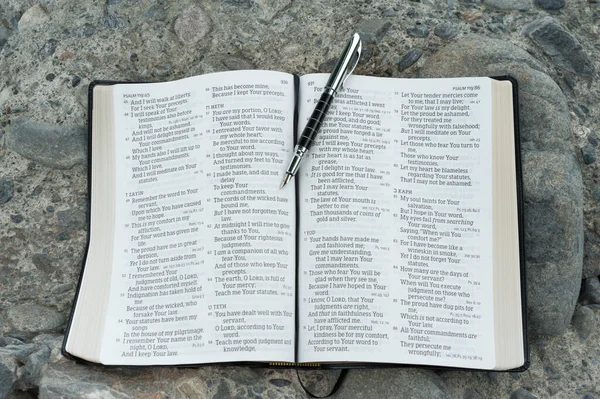 PSALM 119:45
45 And I will walk at liberty,
For I seek Your precepts.
46 I will speak of Your
kings,
And will not be ashamed.
47 And I will delight myself in
Your commandments,
Which I love.
48 My hands also I will lift up
to Your commandments,
Which I love,
And I will meditate on Your
statutes.
ZAYIN
49 Remember the word to Your
servant,
Upon which You have caused
me to hope.
50 This is my comfort in my
affliction,
For Your word has given me
life.
51 The proud have me in great
derision,
Yet I do not turn aside from
Your law.
52 I remembered Your
judgments of old, O LORD,
And have comforted myself.
53 Indignation has taken hold of
me
Because of the wicked, who
forsake Your law.
54 Your statutes have been my
songs
In the house of my pilgrimage.
55 I remember Your name in the
night, O LORD,
And I keep Your law.
56 This has become mine,
Because I kept Your precepts.
HETH
57 You are my portion, O LORD;
I have said that I would keep
Your words.
58 I entreated Your favor with
my whole heart;
Be merciful to me according
to Your word.
59 I thought about my ways,
And turned my feet to Your
testimonies.
60 I made haste, and did not
delay
To keep Your
commandments.
61 The cords of the wicked have
bound me,
But I have not forgotten Your
law.
62 At midnight I will rise to give
thanks to You,
Because of Your righteous
judgments.
63 I am a companion of all who
fear You,
And of those who keep Your
precepts.
64 The earth, O LORD, is full of
Your mercy;
Teach me Your statutes.
TETH
65 You have dealt well with Your
servant,
O LORD, according to Your
word.
66 Teach me good judgment and
knowledge,
67 Before I was afflicted I
But now I keep Your word.
68 You are good, and do good;
Teach me Your statutes.
69 The proud have forged a lie
against me,
But I will keep Your precepts
with my whole heart.
70 Their heart is as fat as
grease,
But I delight in Your law.
71 It is good for me that I have
been afflicted,
That I may learn Your
statutes.
72 The law of Your mouth is
better to me
Than thousands of coins of
gold and silver.
YOD
73 Your hands have made me
and fashioned me;
Give me understanding, that
I may learn Your
commandments.
74 Those who fear You will be
glad when they see me,
Because I have hoped in Your
word.
75 I know, O LORD, that Your
judgments are right,
And that in faithfulness You
have afflicted me.
76 Let, I pray, Your merciful
kindness be for my comfort,
According to Your word to
Your servant.
PSALM 119:86
77 Let Your tender mercies come
to me, that I may live;
For Your law is my delight.
78 Let the proud be ashamed,
For they treated me
wrongfully with falsehood;
But I will meditate on Your
precepts.
79 Let those who fear You turn
to me,
Those who know Your
testimonies.
80 Let my heart be blameless
regarding Your statutes,
That I may not be ashamed.
KAPH
81 My soul faints for Your
salvation,
But I hope in Your word.
82 My eyes fail from searching
Your word,
Saying, "When will You
comfort me?"
83 For I have become like a
wineskin in smoke,
Yet I do not forget Your
statutes.
84 How many are the days of
Your servant?
When will You execute
judgment on those who
persecute me?
85 The proud have dug pits for
me,
Which is not according to
Your law.
86 All Your commandments are
faithful;
They persecute me
wrongfully;